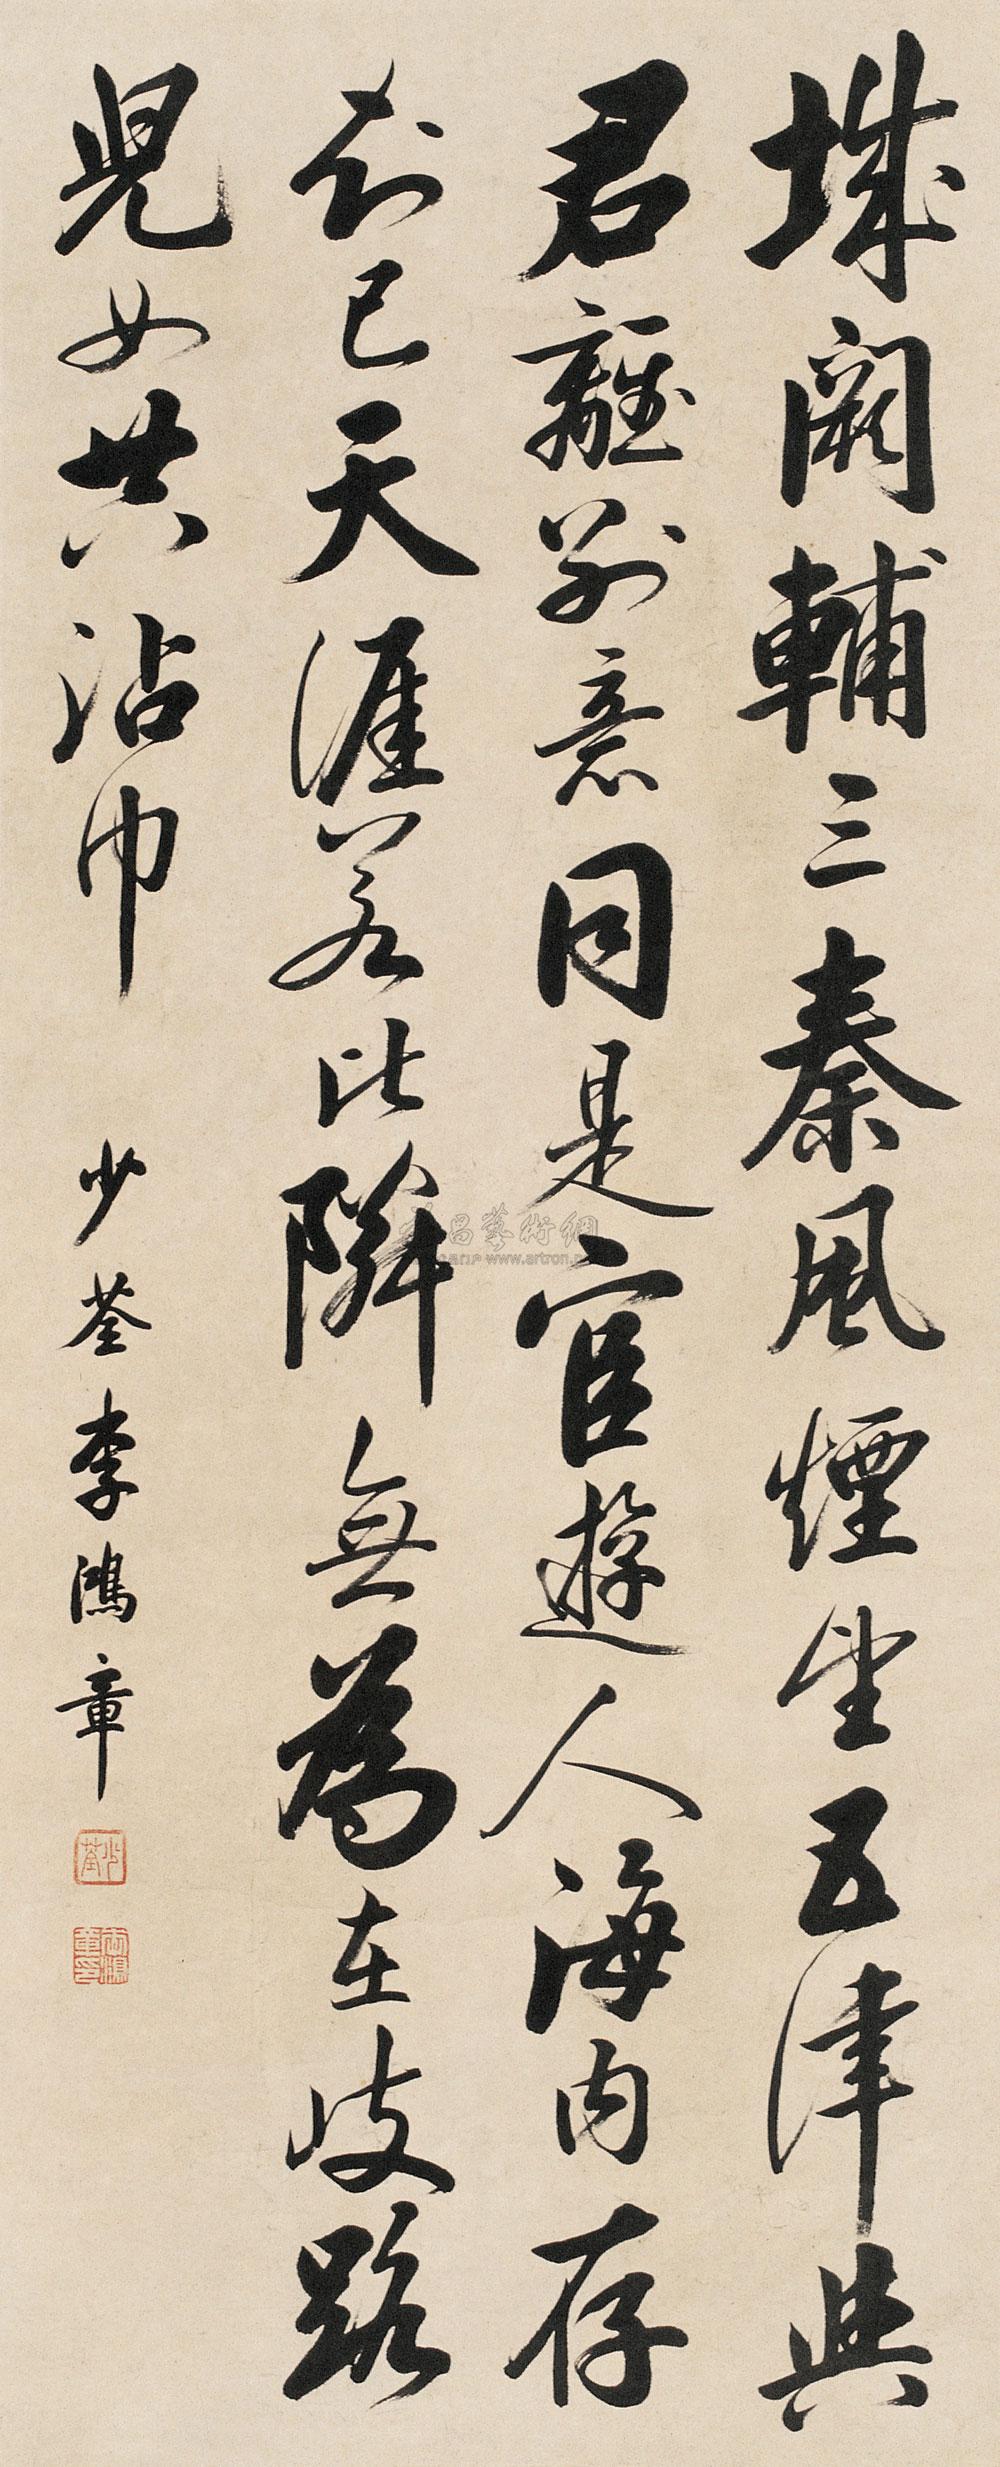 城闕輔三秦風煙望五津與
君離別意同是宦遊人海內存
知己天涯若比隣無為在岐路
兒女共沾巾
少荃李鴻章
少荃
李鴻章印
www.artron.n
昌藝術網